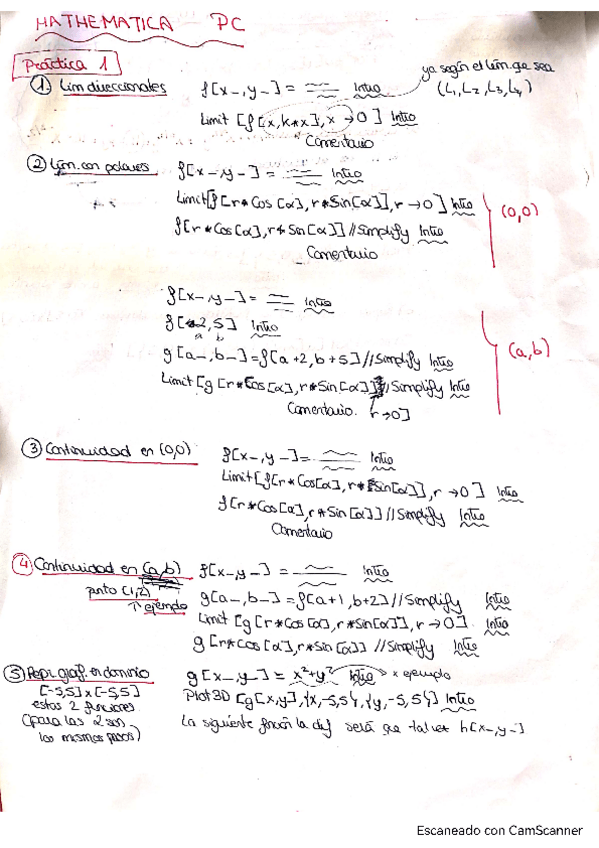 MATHEMATICA PC
Práctica 1
① Lim direccionales f[x_,y_] = Intro
ya según el lim. que sea
(L1, L2, L3, L4)
Limit [f[x, k*x], x → 0] Intro
Comentario
② Lim. con polares f[x_,y_] = Intro
Limit[f[r*Cos[α], r*Sin[α]], r → 0] Intro
f[r*Cos[α], r*Sin[α]] //Simplify Intro
(0,0)
Comentario
f[x_,y_] = Intro
f[2,5] Intro
a b
g[a_,b_] = f[a+2, b+5] //Simplify Intro
(a,b)
Limit[g[r*Cos[α], r*Sin[α]] //Simplify Intro
Comentario. r → 0]
③ Continuidad en (0,0) f[x_,y_] = Intro
Limit[f[r*Cos[α], r*Sin[α]], r → 0] Intro
f[r*Cos[α], r*Sin[α]] //Simplify Intro
Comentario
④ Continuidad en (a,b) f[x_,y_] = Intro
pnto (1,2)
↑ ejemplo
g[a_,b_] = f[a+1, b+2] //Simplify Intro
Limit [g[r*Cos[α], r*Sin[α]], r → 0]. Intro
g[r*Cos[α], r*Sin[α]] //Simplify Intro
⑤ Repr. graf. en dominio g[x_,y_] = x²+y² Intro → x ejemplo
[-5,5]x[-5,5]
estas 2 funciones
(para las 2 son
los mismos pasos)
Plot3D [g[x,y], {x,-5,5}, {y,-5,5}] Intro
La siguiente función la def será que tal vez h[x_,y_]
Escaneado con CamScanner